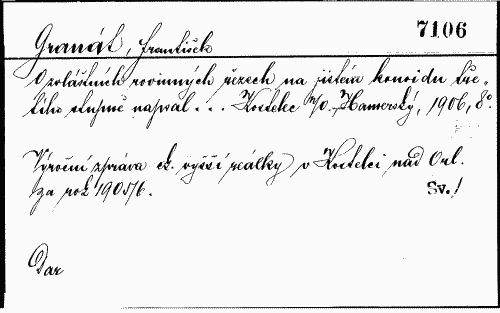 7106
Granát, František
O zvláštních rovinných řezech na jistém konoidu tře-
tího stupně napsal... Kostelec n/O. Hamerský, 1906, 8°
Výroční zpráva ck. vyšší reálky v Kostelci nad Orl.
za rok 1905/6.
Sv. /
Dar